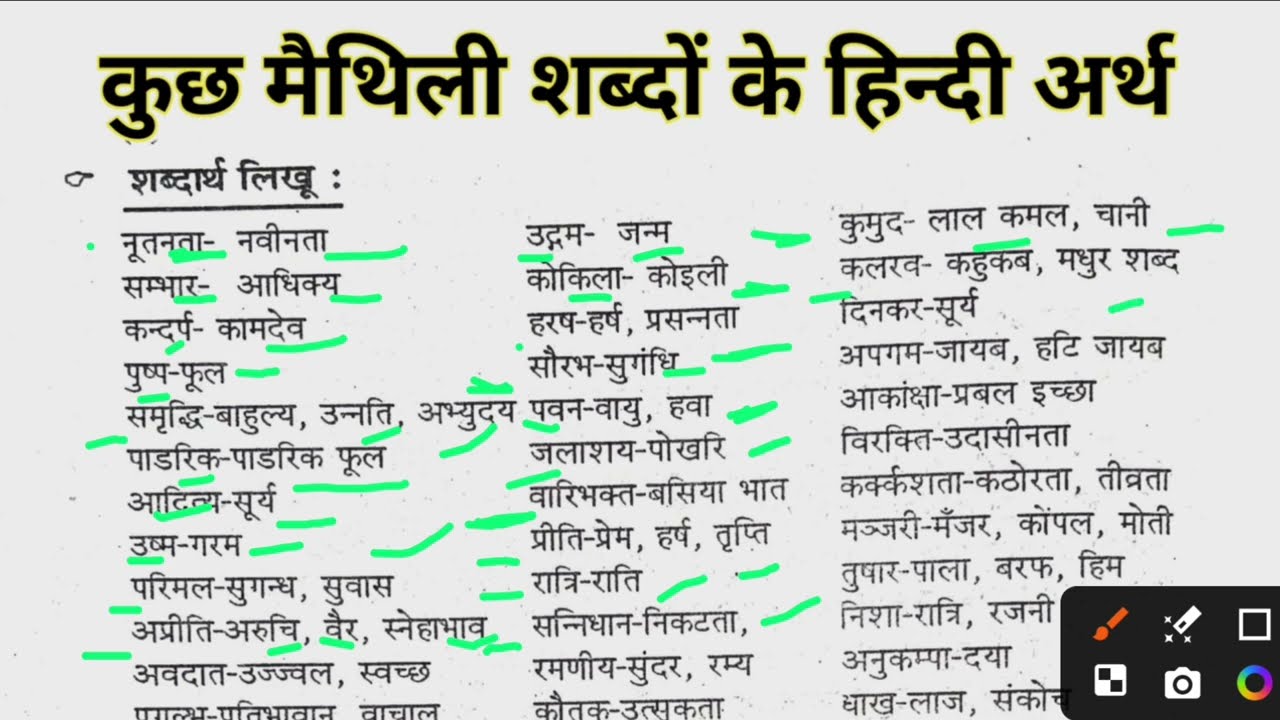 कुछ मैथिली शब्दों के हिन्दी अर्थ
शब्दार्थ लिखू :
नूतनता- नवीनता
सम्भार- आधिक्य
कन्दर्प- कामदेव
पुष्प-फूल
समृद्धि-बाहुल्य, उन्नति, अभ्युदय
पाडरिक-पाडरिक फूल
आदित्य-सूर्य
उष्म-गरम
परिमल-सुगन्ध, सुवास
अप्रीति-अरुचि, वैर, स्नेहाभाव
अवदात-उज्ज्वल, स्वच्छ
प्रगल्भ-प्रतिभावान, वाचाल
उद्गम- जन्म
कोकिला- कोइली
हरष-हर्ष, प्रसन्नता
सौरभ-सुगंधि
पवन-वायु, हवा
जलाशय-पोखरि
वारिभक्त-बसिया भात
प्रीति-प्रेम, हर्ष, तृप्ति
रात्रि-राति
सन्निधान-निकटता,
रमणीय-सुंदर, रम्य
कौतक-उत्सकता
कुमुद- लाल कमल, चानी
कलरव- कहुकब, मधुर शब्द
दिनकर-सूर्य
अपगम-जायब, हटि जायब
आकांक्षा-प्रबल इच्छा
विरक्ति-उदासीनता
कर्क्कशता-कठोरता, तीव्रता
मञ्जरी-मँजर, कोंपल, मोती
तुषार-पाला, बरफ, हिम
निशा-रात्रि, रजनी
अनुकम्पा-दया
धाख-लाज, संकोच